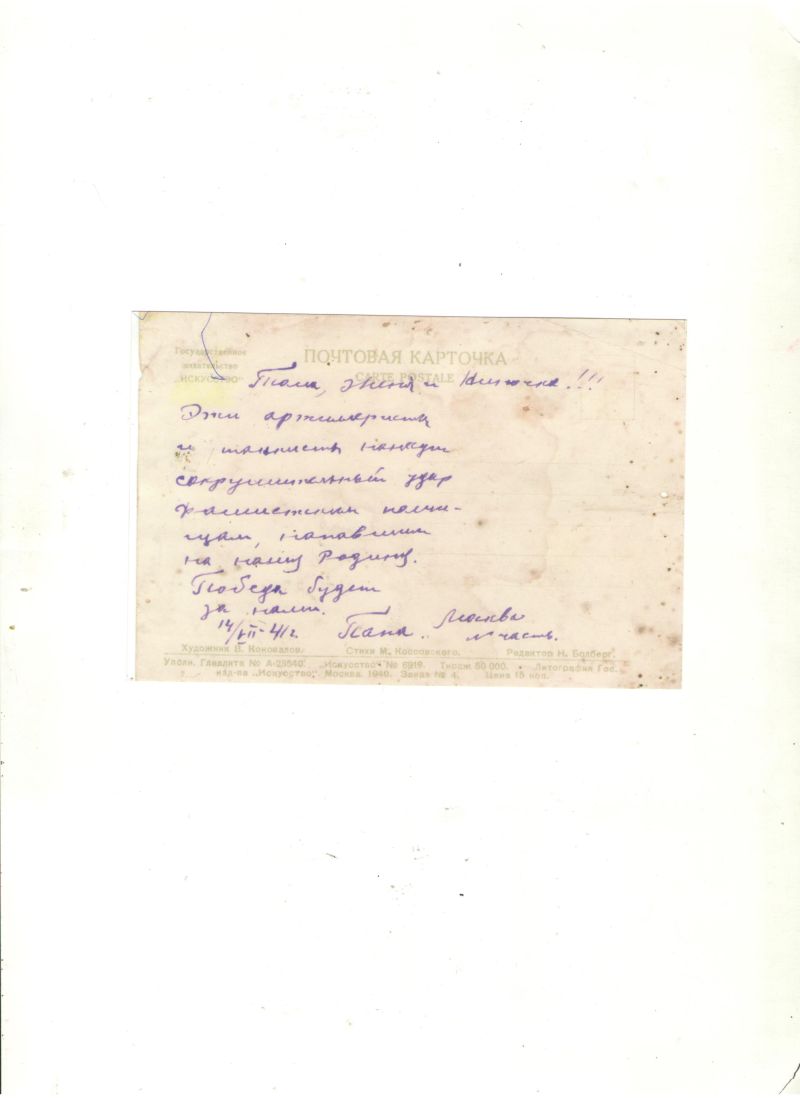 Государственное
издательство
„ИСКУССТВО"
ПОЧТОВАЯ КАРТОЧКА
CARTE POSTALE
Женя и !!!
Эти артиллеристы
и танкисты нанесут
сокрушительный удар
фашистским полчи-
щам, напавшим
на нашу Родину.
Победа будет
за нами.
14/VII-41г. Папа. Москва
N часть.
Художник В. Коновалов. Стихи М. Коссовского. Редактор Н. Болберг.
Уполн. Главлита № А-28540. „Искусство" № 6919. Тираж 50 000. Литография Гос.
изд-ва „Искусство", Москва. 1940. Заказ № 4. Цена 15 коп.